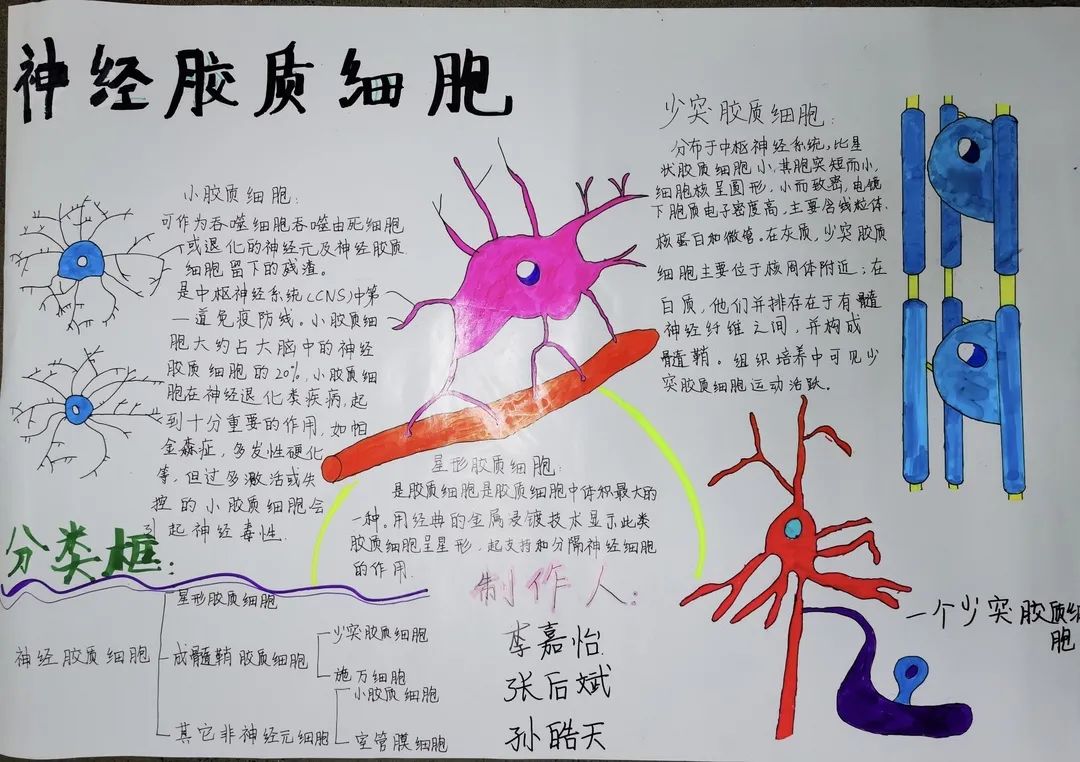 神经胶质细胞
小胶质细胞：
可作为吞噬细胞吞噬由死细胞
或退化的神经元及神经胶质
细胞留下的残渣。
是中枢神经系统(CNS)中第
一道免疫防线。小胶质细
胞大约占大脑中的神经
胶质细胞的20%，小胶质细
胞在神经退化类疾病，起
到十分重要的作用.如帕
金森症，多发性硬化
等，但过多激活或失
控的小胶质细胞会
引起神经毒性.
少突胶质细胞：
分布于中枢神经系统，比星
状胶质细胞小，其胞突短而小，
细胞核呈圆形，小而致密，电镜
下胞质电子密度高，主要含线粒体.
核蛋白和微管。在灰质，少突胶质
细胞主要位于核周体附近；在
白质，他们并排存在于有髓
神经纤维之间，并构成
髓鞘。组织培养中可见少
突胶质细胞运动活跃。
星形胶质细胞：
是胶质细胞是胶质细胞中体积最大的
一种。用经典的金属浸镀技术显示此类
胶质细胞呈星形，起支持和分隔神经细胞
的作用.
分类框：
神经胶质细胞
星形胶质细胞
成髓鞘胶质细胞
少突胶质细胞
施万细胞
其它非神经元细胞
小胶质细胞
室管膜细胞
制作人：
李嘉怡
张后斌
孙皓天
一个少突胶质细
胞